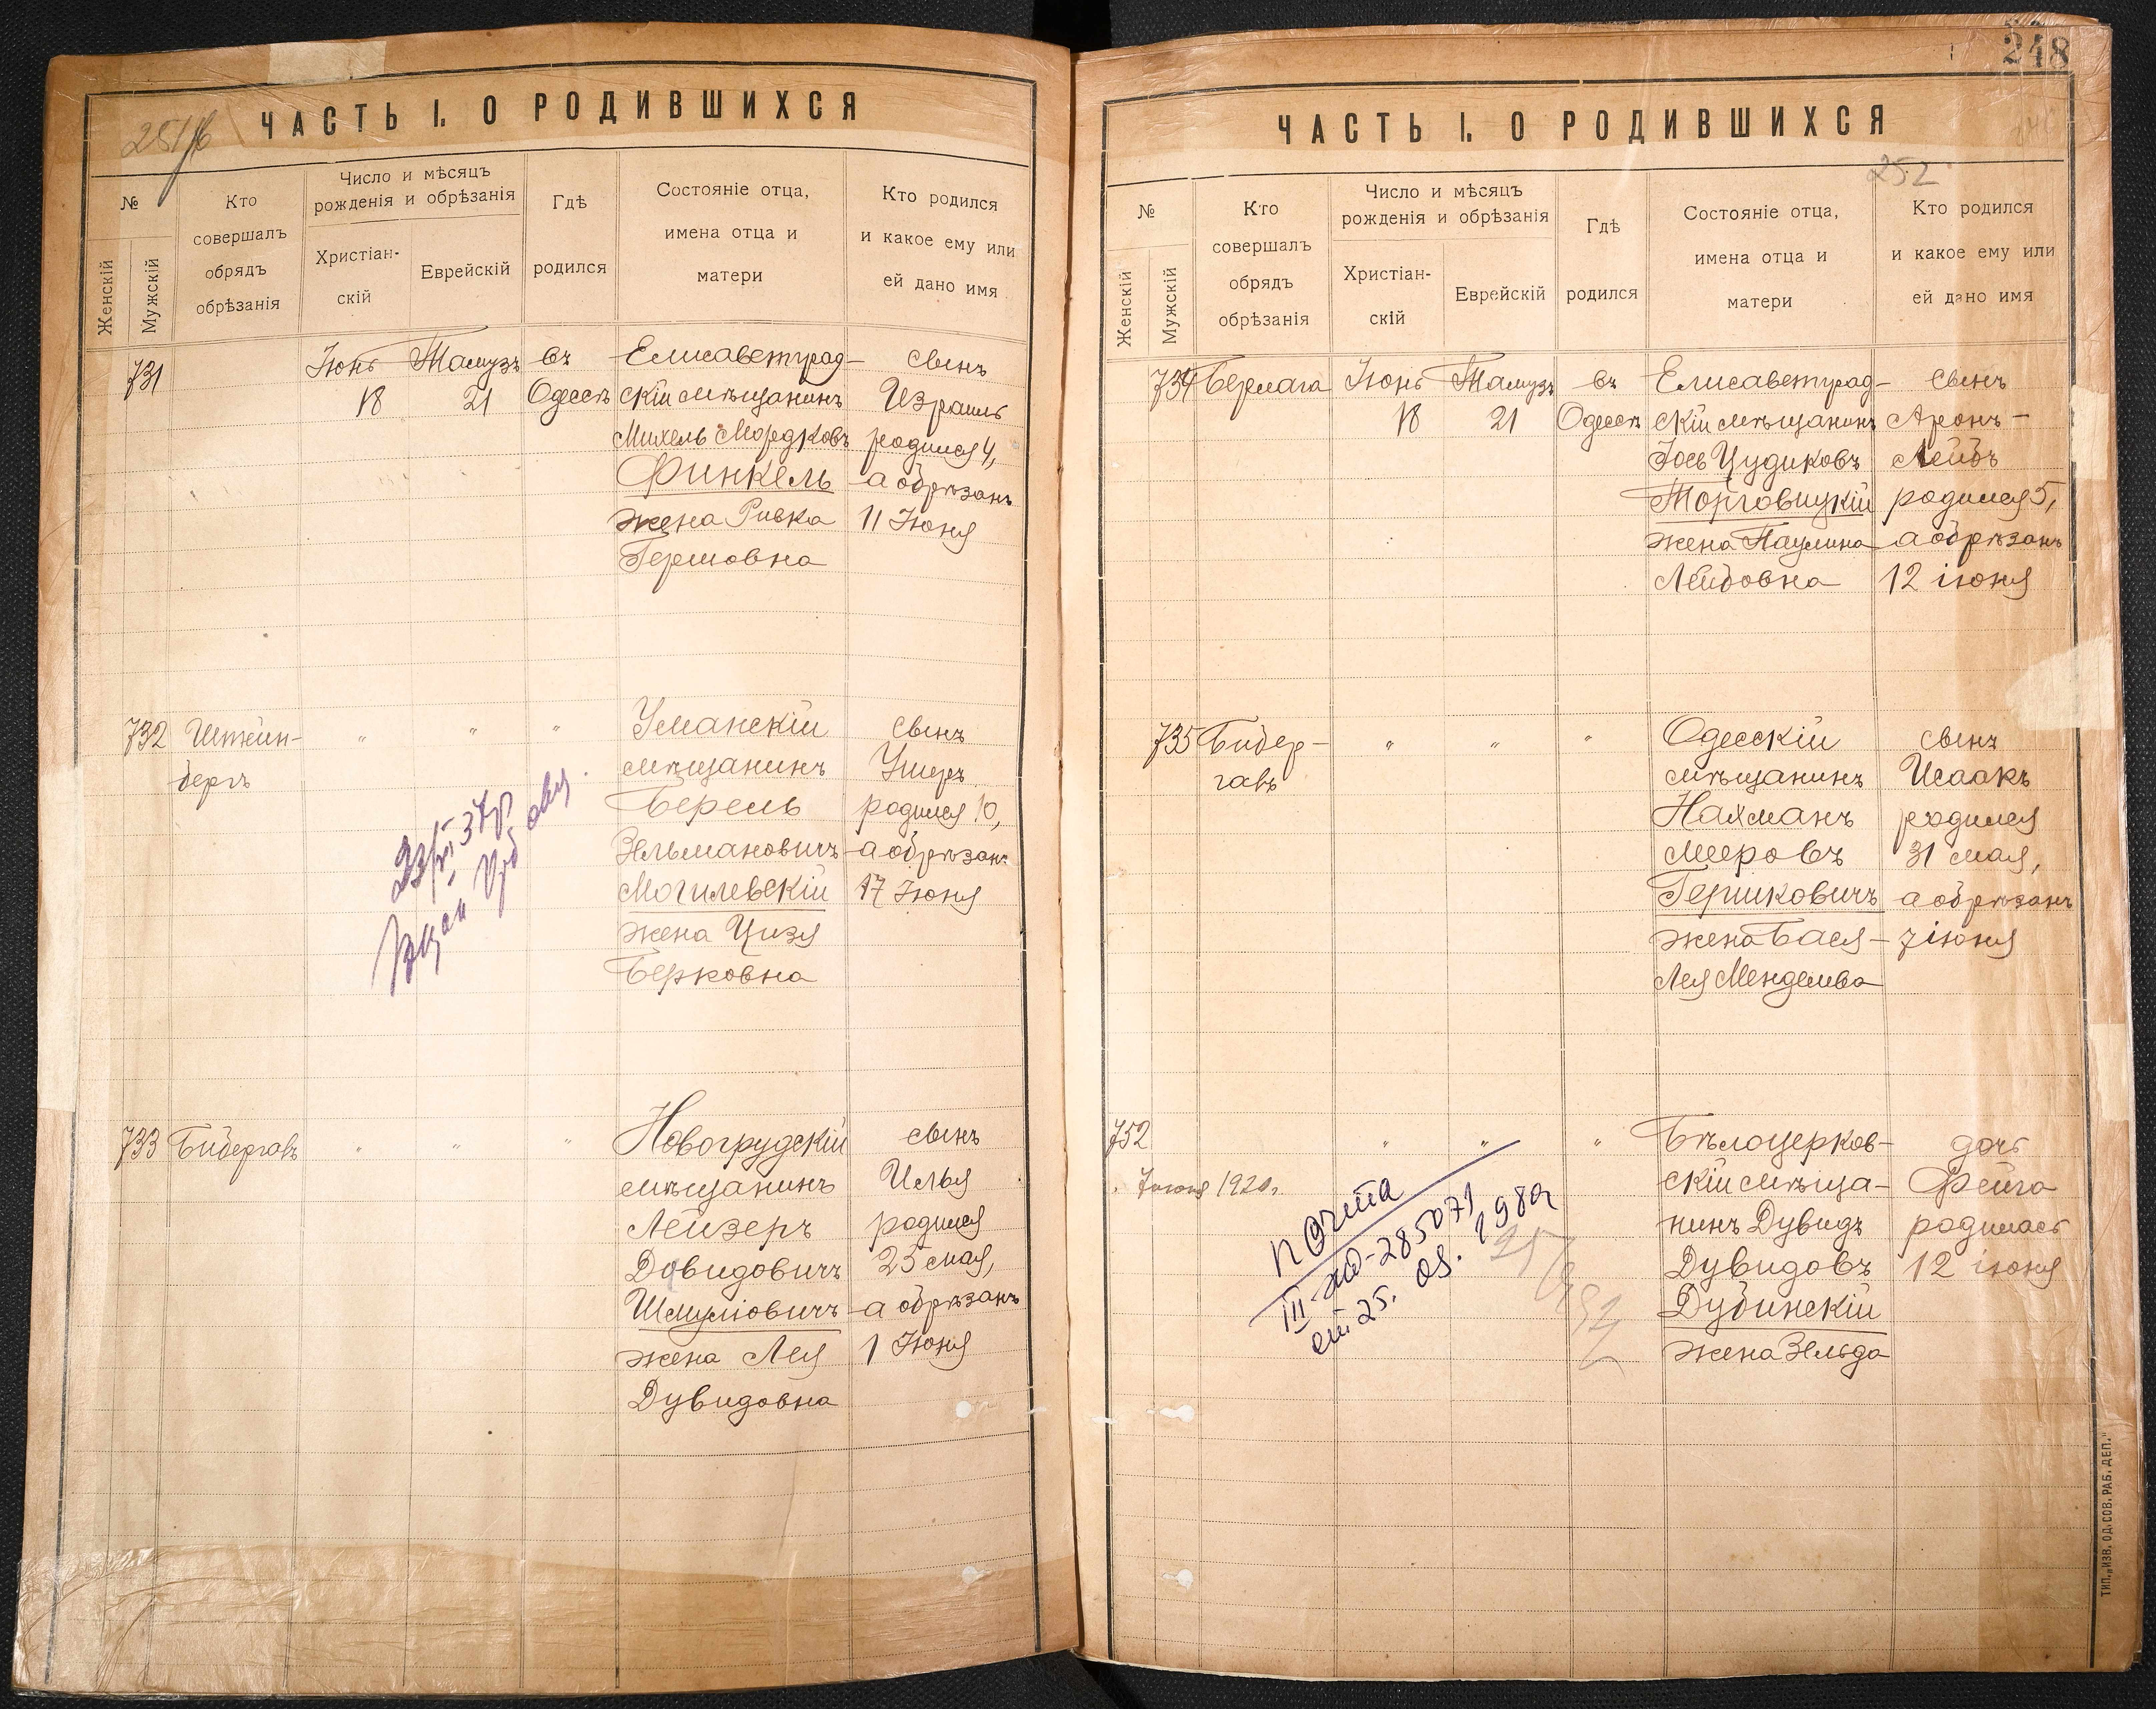 251/б
ЧАСТЬ I. О РОДИВШИХСЯ
№
Женскій
Мужскій
Кто
совершалъ
обрядъ
обрѣзанія
Число и мѣсяцъ
рожденія и обрѣзанія
Христіан-
скій
Еврейскій
Гдѣ
родился
Состояніе отца,
имена отца и
матери
Кто родился
и какое ему или
ей дано имя
731
Іюнь
18
Тамузъ
21
въ
Одессѣ
Елисаветград-
скій мѣщанинъ
Михель Мордковъ
Финкель
жена Ривка
Гершовна
сынъ
Израиль
родился 4,
а обрѣзанъ
11 Іюня
732
Штейн-
бергъ
"
"
"
Уманскій
мѣщанинъ
Берель
Зельмановичъ
Могилевскій
жена Цизя
Берковна
сынъ
Ушеръ
родился 10,
а обрѣзанъ
17 Іюня
733
Бибергавъ
"
"
"
Новогрудскій
мѣщанинъ
Лейзеръ
Довидовичъ
Шмуліовичъ
жена Лея
Дувидовна
сынъ
Илья
родился
25 мая,
а обрѣзанъ
1 Іюня
248
ЧАСТЬ I. О РОДИВШИХСЯ
252
№
Женскій
Мужскій
Кто
совершалъ
обрядъ
обрѣзанія
Число и мѣсяцъ
рожденія и обрѣзанія
Христіан-
скій
Еврейскій
Гдѣ
родился
Состояніе отца,
имена отца и
матери
Кто родился
и какое ему или
ей дано имя
734
Бермага
Іюнь
18
Тамузъ
21
въ
Одессѣ
Елисаветград-
скій мѣщанинъ
Іось Цудиковъ
Торговицкій
жена Паулина
Лейбовна
сынъ
Аронъ-
Лейбъ
родился 5,
а обрѣзанъ
12 іюня
735
Бибер-
гавъ
"
"
"
Одесскій
мѣщанинъ
Нахманъ
Мееровъ
Гершковичъ
жена Бася-
Лея Менделева
сынъ
Исаакъ
родился
31 мая,
а обрѣзанъ
7 іюня
752
"
"
"
Бѣлоцерков-
скій мѣща-
нинъ Дувидъ
Дувидовъ
Дубинскій
жена Зельда
дочь
Фейга
родилась
12 іюня
1920г.
почта
III-жд-285071
от 25. 09. 198
ТИП. „ИЗВ. ОД. СОВ. РАБ. ДЕП."